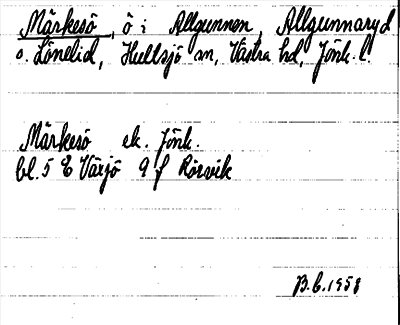 Märkesö, ö i Allgunnen, Allgunnaryd
o. Lönelid, Hullsjö sn, Västra hd, Jönk. l.
Märkesö ek. Jönk.
bl. 5 E Växjö 9 f Rörvik
B.E. 1958